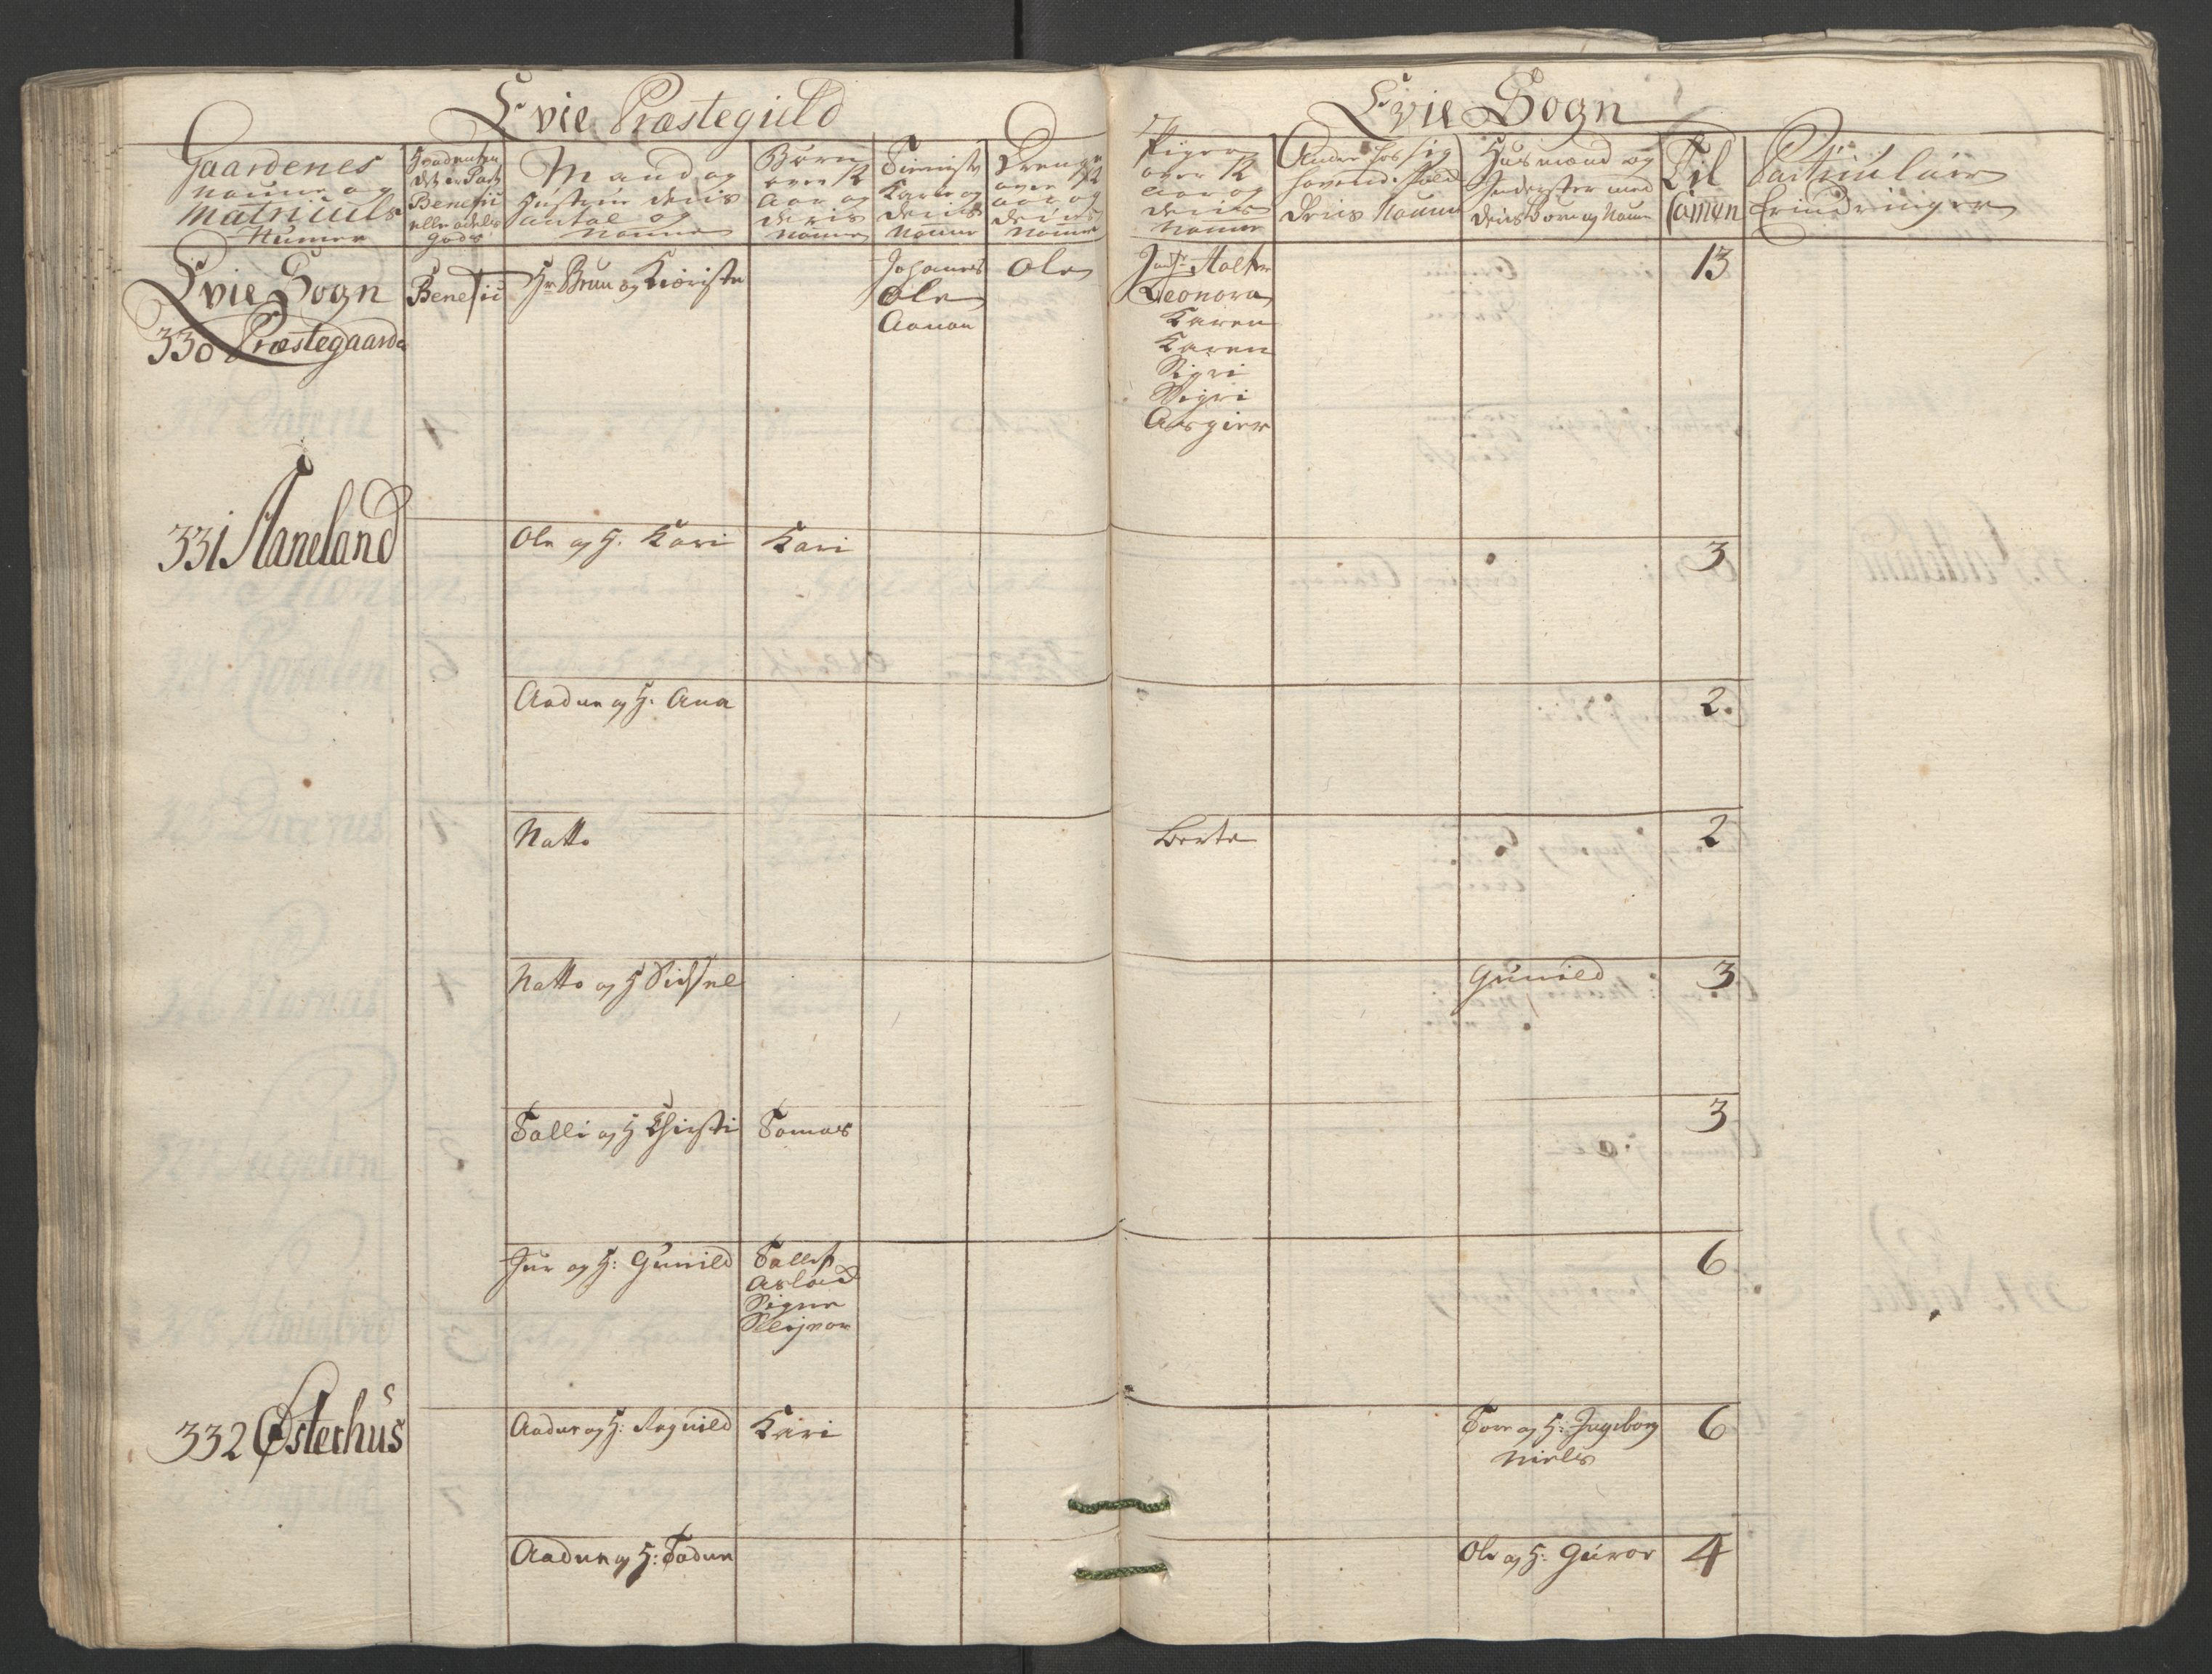 Evie Præstegield
Evie Sogn
Gaardenes
Naune og
Matriculs
Numer
det er
Benefi
eller odels
gods
Mand og
Hustrue deris
antal og
Naune
Børn
over 12
Aar og
deris
Naune
Tienniste
Karle og
deris
Naune
Drenge
over 12
aar og
deris
Naune
Piger
over 12
aar og
deris
Naune
Andre hos sig
havend:
deris Naune
Husmænd og
Inderster med
deris Børn og Naune
Til
samen
Particulair
Erindringer
Evie Sogn
330 Præstegaard
Benefic
Hr Brun og Kioriste
Johannes
Ole
Aanon
Ole
Leonora
Karen
Karen
Sigri
Sigri
Asgier
13
331 Haneland
Ole og H. Kari
Kari
3
Aadun og H. Ana
2
Natto
Berte
2
Natto og H Sidsel
Gunild
3
Talli og H Chirsti
Tomas
3
Jur og H: Gunild
Tallef
Aslaud
Signe
6
332 Østerhus
Aadun og H: Ragnild
Kari
Tore og H: Ingeborg
Niels
6
Aadun og H: Todun
Ole og H: Guror
4